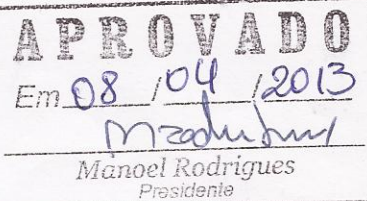 APROVADO
Em 08 / 04 / 2013
Manoel Rodrigues
Presidente